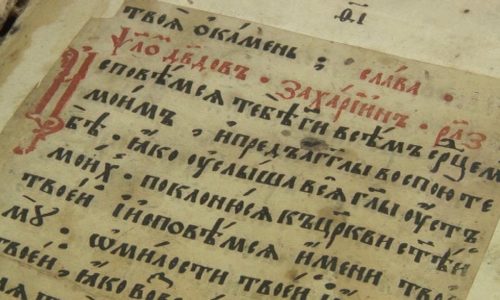 твоѧ ѡ камень : слава ·
ѱало́ дв҃довъ · захарїинъ · р҃лз
Исповѣмсѧ тебѣ гі всѣмъ ср҃цемъ
моимъ · и предъ агг҃лы воспою те
бѣ · ꙗко оуслыша всѧ гл҃ы оустъ
моих · поклонюсѧ къ цр҃кви ст҃ѣй
твоей и исповѣмсѧ имени твое
мꙋ · ѡ милости твоей
твоей · ꙗко во